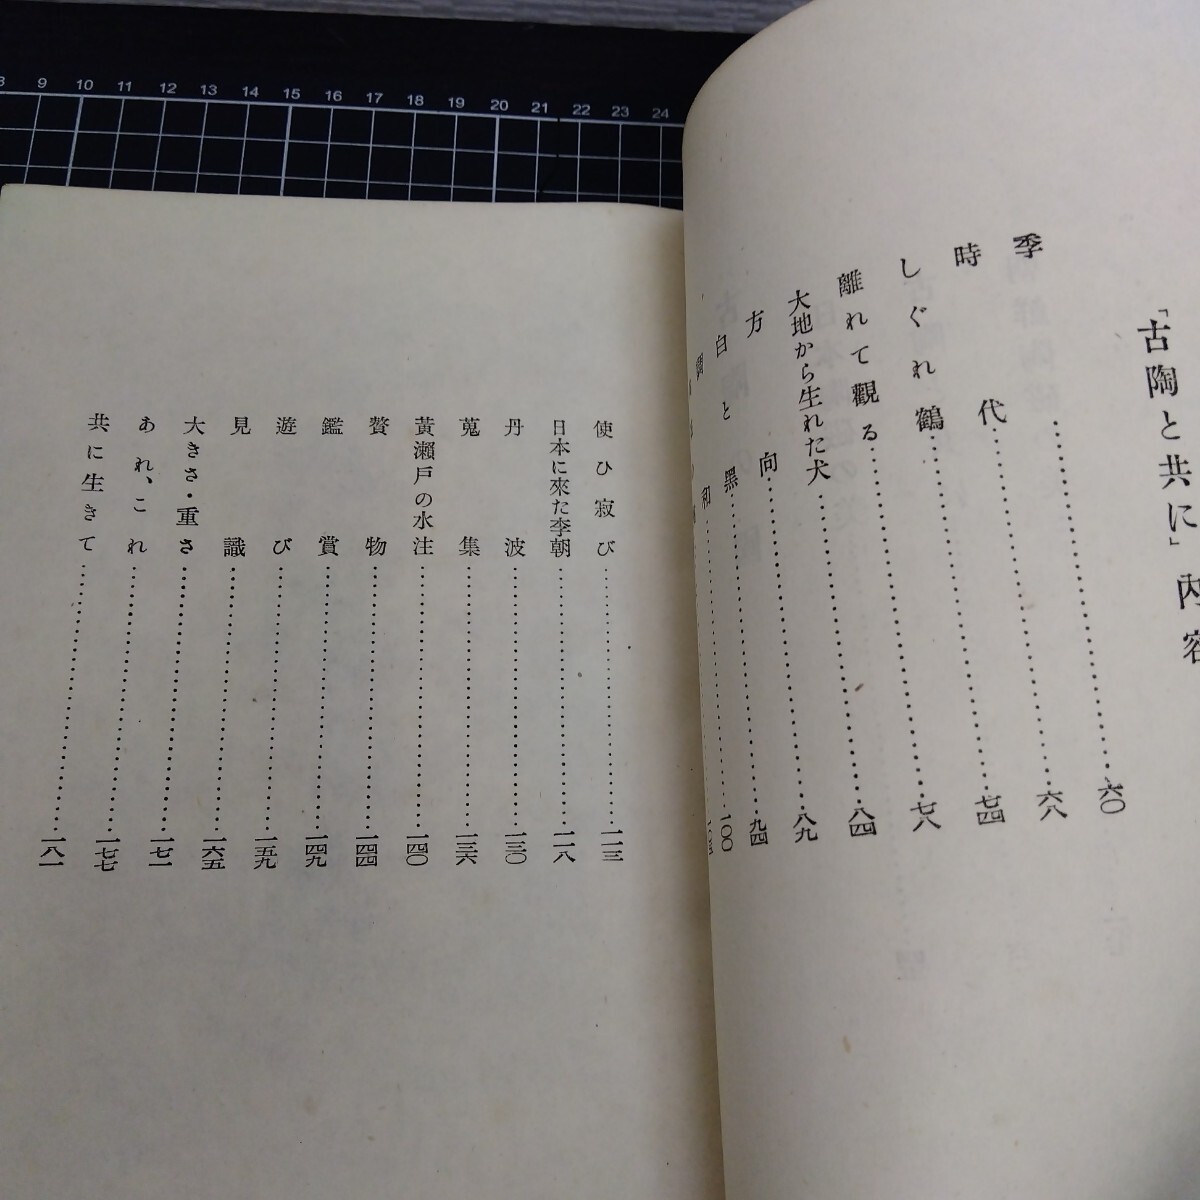 「古陶と共に」内容
季……六〇
時代……六八
しぐれ鶴……七四
離れて観る……七八
大地から生れた犬……八四
方向……八九
白と黑……九四
和……100
使ひ寂び……一一三
日本に來た李朝……一一八
丹波……一三〇
蒐集……一三六
黃瀨戶の水注……一四〇
贅物……一四四
鑑賞……一四九
遊び……一五九
見識……一六五
大きさ・重さ……一七一
あれ、これ……一七七
共に生きて……一八一
9 10 11 12 13 14 15 16 17 18 19 20 21 22 23 24